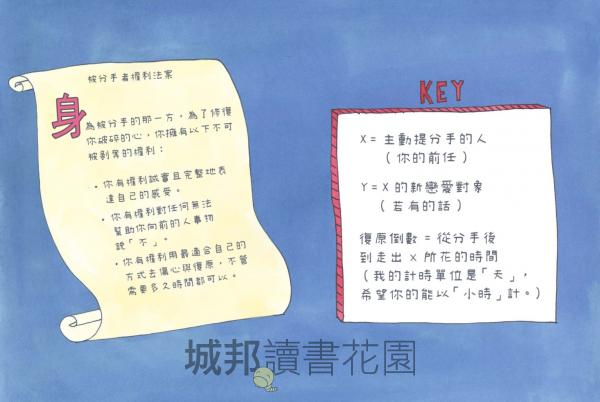 被分手者權利法案
身
為被分手的那一方，為了修復
你破碎的心，你擁有以下不可
被剝奪的權利：
• 你有權利誠實且完整地表
達自己的感受。
• 你有權利對任何無法
幫助你向前的人事物
說「不」。
• 你有權利用最適合自己的
方式去傷心與復原，不管
需要多久時間都可以。
KEY
X = 主動提分手的人
（你的前任）
Y = X 的新戀愛對象
（若有的話）
復原倒數 = 從分手後
到走出 X 所花的時間
（我的計時單位是「天」，
希望你的能以「小時」計。）
城邦讀書花園